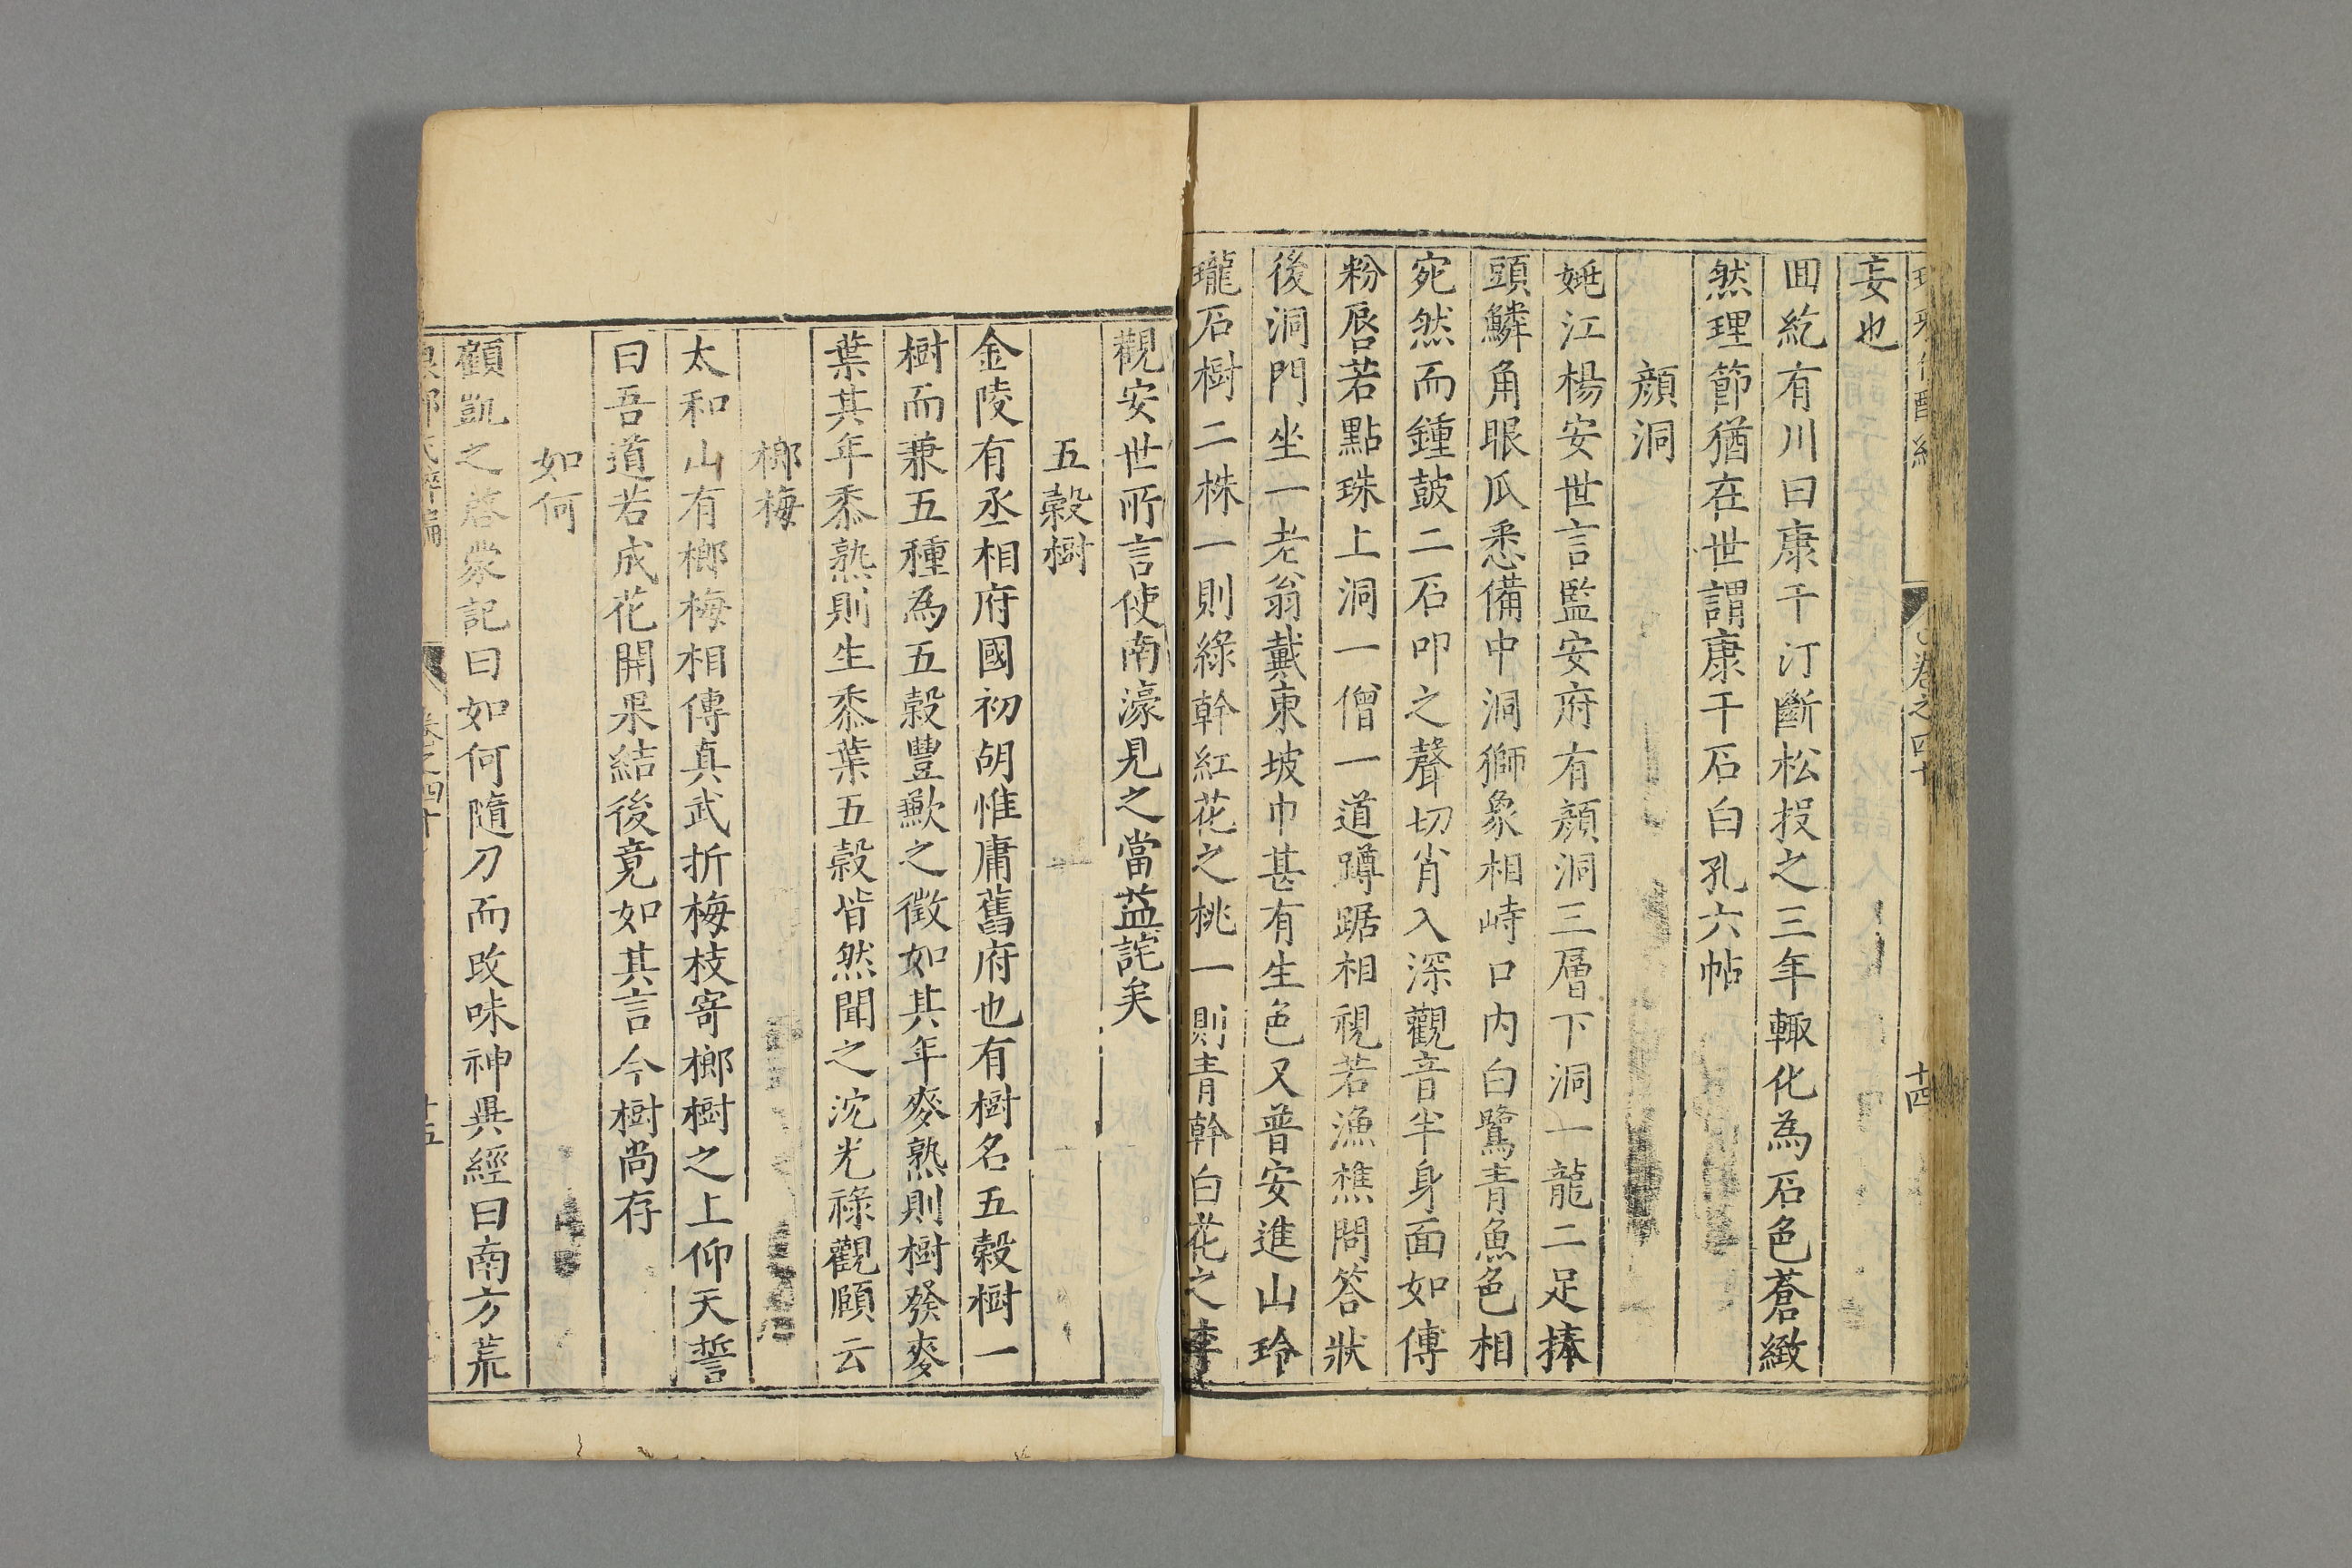 卷之四十
十四
妄也
囬紇有川曰康干汀斷松投之三年輙化為石色蒼緻
然理節猶在世謂康干石白孔六帖
顏洞
姚江楊安世言監安府有顏洞三層下洞一龍二足捧
頭鱗角眼瓜悉備中洞獅象相峙口內白鷺青魚色相
宛然而鍾皷二石叩之聲切肖入深觀音半身面如傅
粉唇若點珠上洞一僧一道蹲踞相視若漁樵問答狀
後洞門坐一老翁戴東坡巾甚有生色又普安進山玲
瓏石樹二株一則綠幹紅花之桃一則青幹白花之李
觀安世所言使南濠見之當益詫矣
五穀樹
金陵有丞相府國初胡惟庸舊府也有樹名五穀樹一
樹而兼五種為五穀豐歉之徵如其年麥熟則樹發麥
葉其年黍熟則生黍葉五穀皆然聞之沈光祿觀頤云
榔梅
太和山有榔梅相傳真武折梅枝寄榔樹之上仰天誓
曰吾道若成花開果結後竟如其言今樹尚存
如何
顧凱之啓蒙記曰如何隨刀而改味神異經曰南方荒
卷之四十
十五